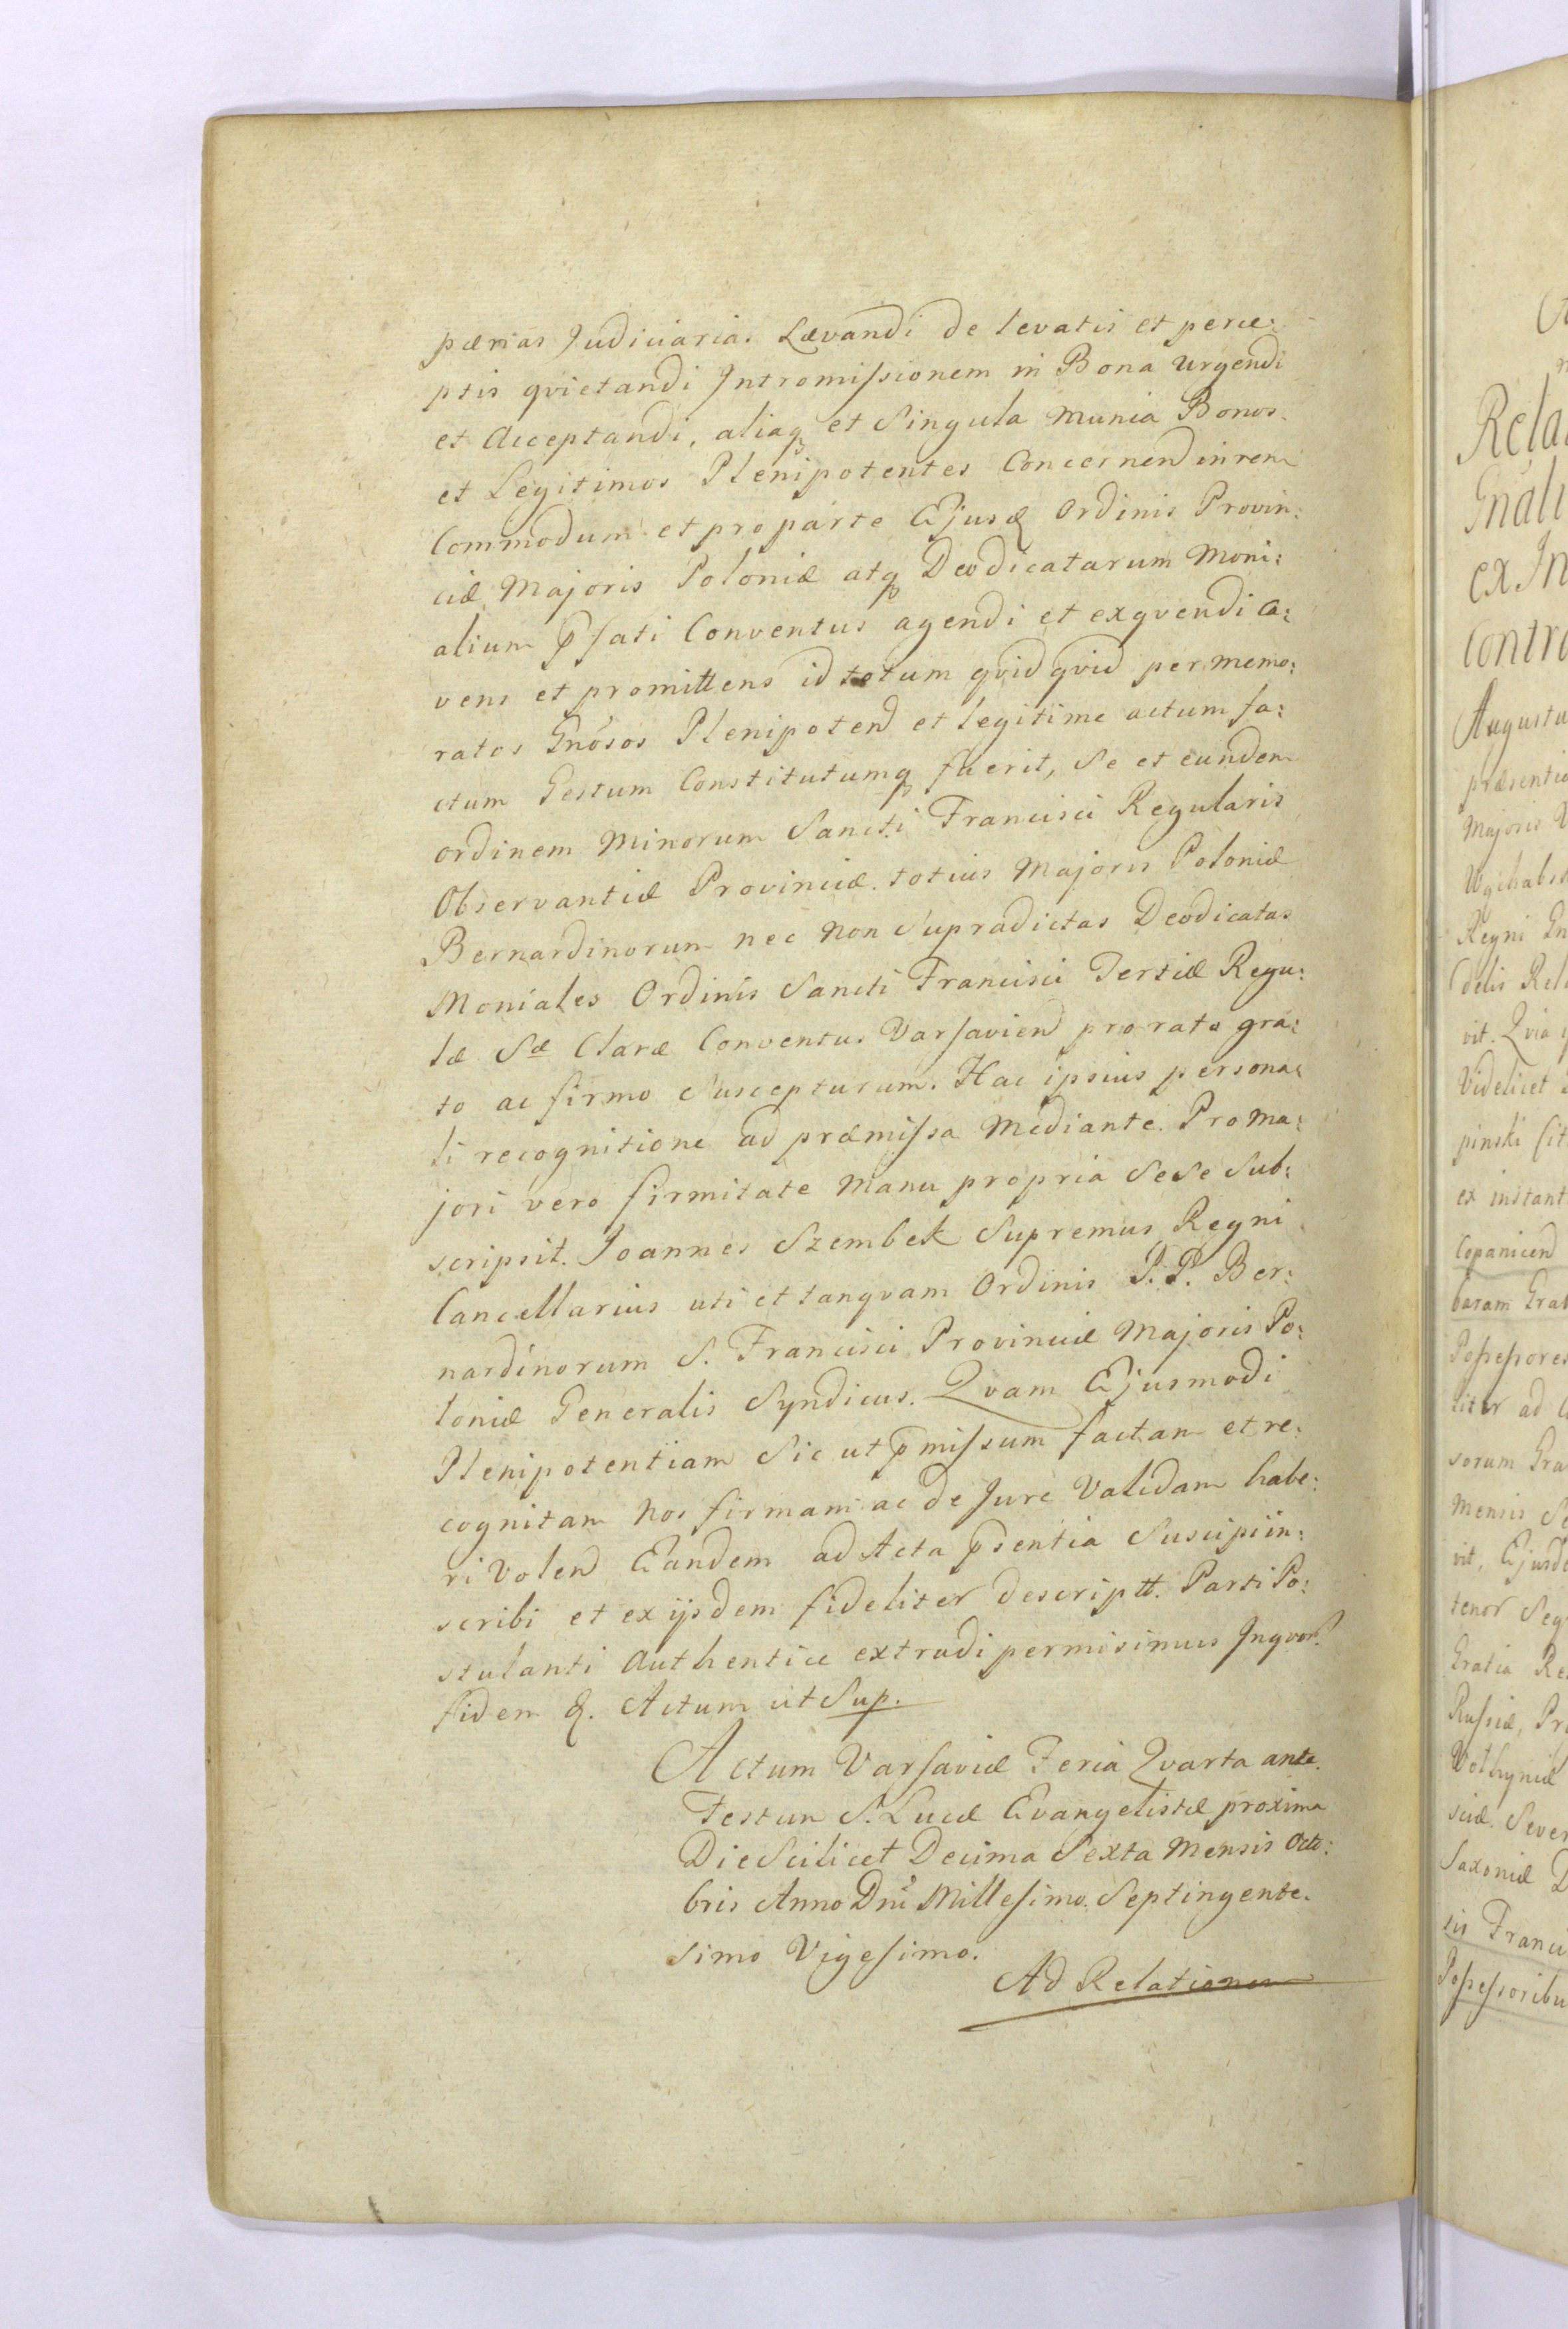 pænas Judiciarias Lævandi de levatis et perce:
ptis qvietandi Intromissionem in Bona Urgendi
et Acceptandi, aliaq et Singula Munia Bonos
et Legitimos Plenipotentes Concernend in rem
Commodum et pro parte Ejusd Ordinis Provin:
ciæ Majoris Poloniæ atq Deodicatarum Moni:
alium p̄fati Conventus agendi et exqvendi Ca:
vens et promittens id totum qvid qvid per memo:
ratos Gnōsos Plenipotend et legitime actum fa:
ctum Gestum Constitutumq fuerit, Se et eundem
Ordinem Minorum Sancti Francisci Regularis
Observantiæ Provinciæ totius Majoris Poloniæ
Bernardinorum nec non Supradictas Deodicatas
Moniales Ordinis Sancti Francisci Tertiæ Regu:
læ Sæ Claræ Conventus Varsaviend pro rato gra:
to ac firmo Suscepturum. Hac ipsius persona:
li recognitione ad præmissa Mediante. Pro Ma:
jori vero firmitate Manu propria Sese Sub:
scripsit. Joannes Szembek Supremus Regni
Cancellarius uti et tanqvam Ordinis P.P. Ber:
nardinorum S. Francisci Provinciæ Majoris Po:
loniæ Generalis Syndicus. Qvam Ejusmodi
Plenipotentiam Sic ut p̄missum factam et re:
cognitam Nos firmam ac de Jure Validam habe:
ri Volend Eandem ad Acta p̄sentia Suscipi in:
scribi et ex ijsdem fideliter descriptt. Parti Po:
stulanti Authentice extradi permisimus Inqvor.
fidem &. Actum ut Sup.
Actum Varsaviæ Feria Qvarta ante
Festum S. Lucæ Evangelistæ proxima
Die Scilicet Decima Sexta Mensis Octo:
bris Anno Dni Millesimo Septingente.
simo Vigesimo.
Ad Relationem
Rela
Gnali
ex In
Contra
Augustu
præsentia
Majoris
Regni Gn
delis Rela
vit. Qvia
Videlicet
pinski
ex instant
Copanicend
baram Grab
Possessores
liter ad
sorum Gra
Mensis Se
vit, Ejusde
tenor Seq
Gratia Re
Russiæ, Pr
Volhyniæ
sciæ Sever
Saxoniæ D
sis Franci
Possessoribu